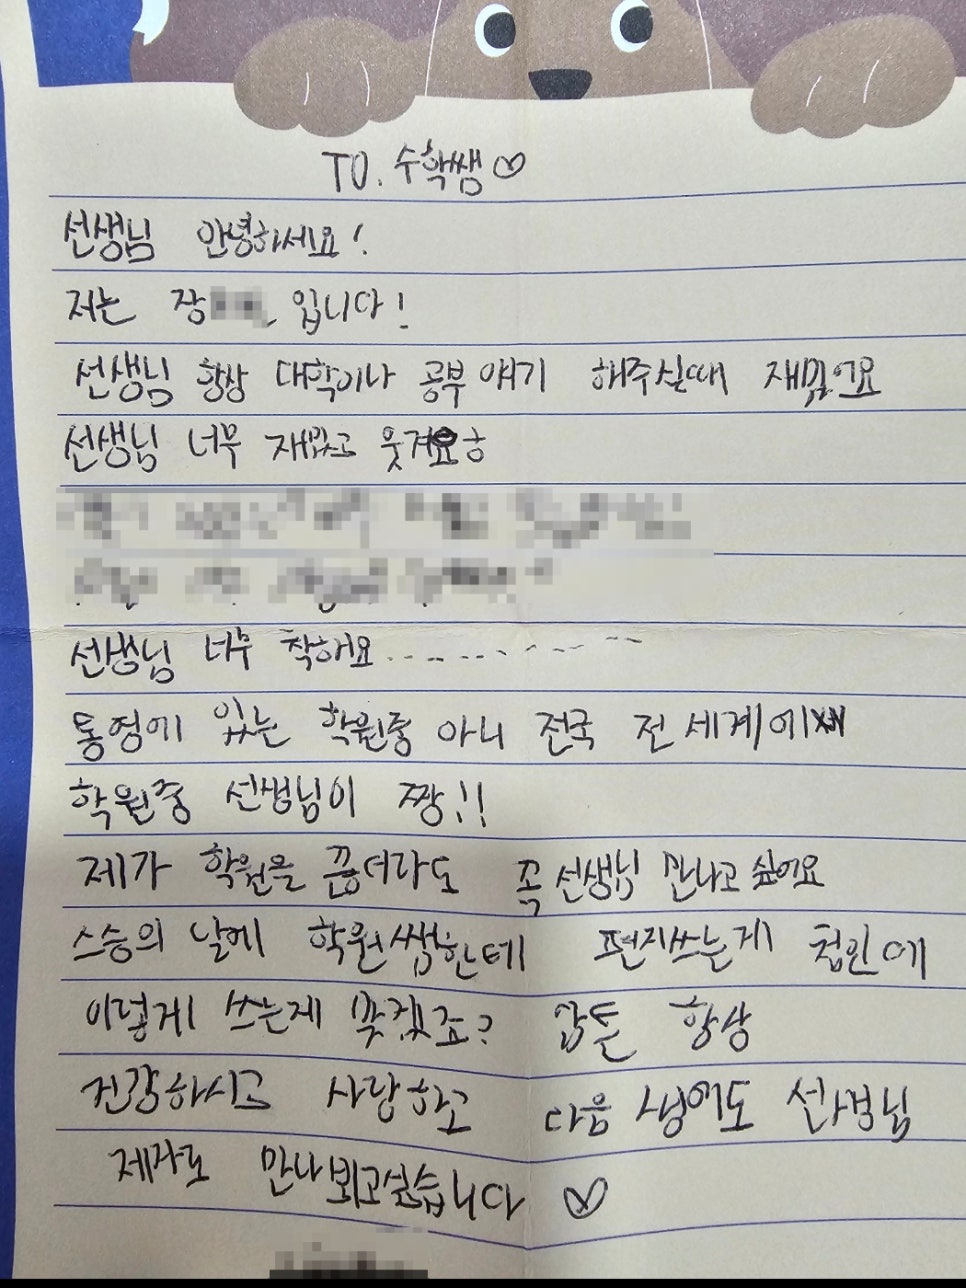 TO. 수학쌤♡
선생님 안녕하세요!
저는 장 입니다!
선생님 항상 대학이나 공부 얘기 해주실때 재밌어요
선생님 너무 재밌고 웃겨요ㅎ
선생님 너무 착해요..........
통영에 있는 학원중 아니 전국 전 세계에
학원중 선생님이 짱!!
제가 학원을 끊더라도 꼭 선생님 만나고 싶어요
스승의 날에 학원쌤한테 편지쓰는게 첨인데
이렇게 쓰는제 맞겠죠? 암튼 항상
건강하시고 사랑하고 다음 생에도 선생님
제자로 만나뵈고싶습니다 ♡